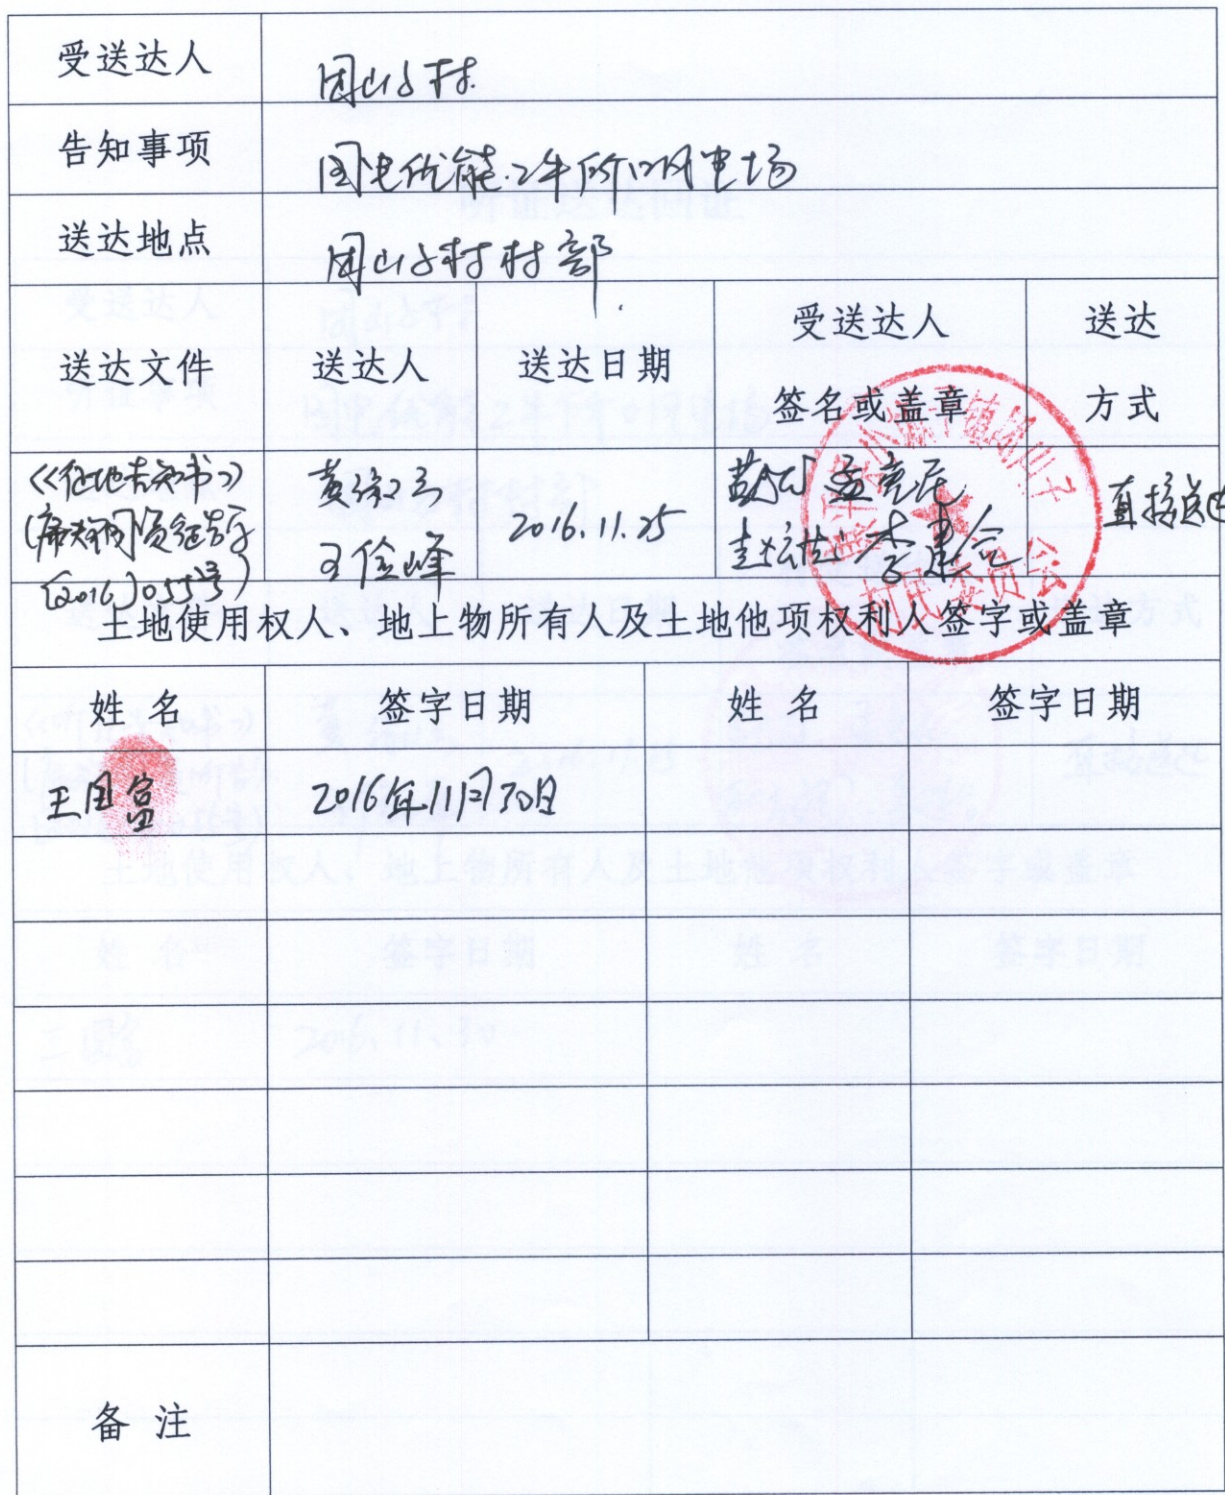 受送达人
团山子村
告知事项
国电优能二牛所口风电场
送达地点
团山子村村部
送达文件
送达人
送达日期
受送达人
签名或盖章
送达
方式
《征地告知书》
资征告字
(2016)055号
王俭峰
2016.11.25
孟宪民
李建合
直接送达
土地使用权人、地上物所有人及土地他项权利人签字或盖章
姓 名
签字日期
姓 名
签字日期
王国富
2016年11月30日
备 注